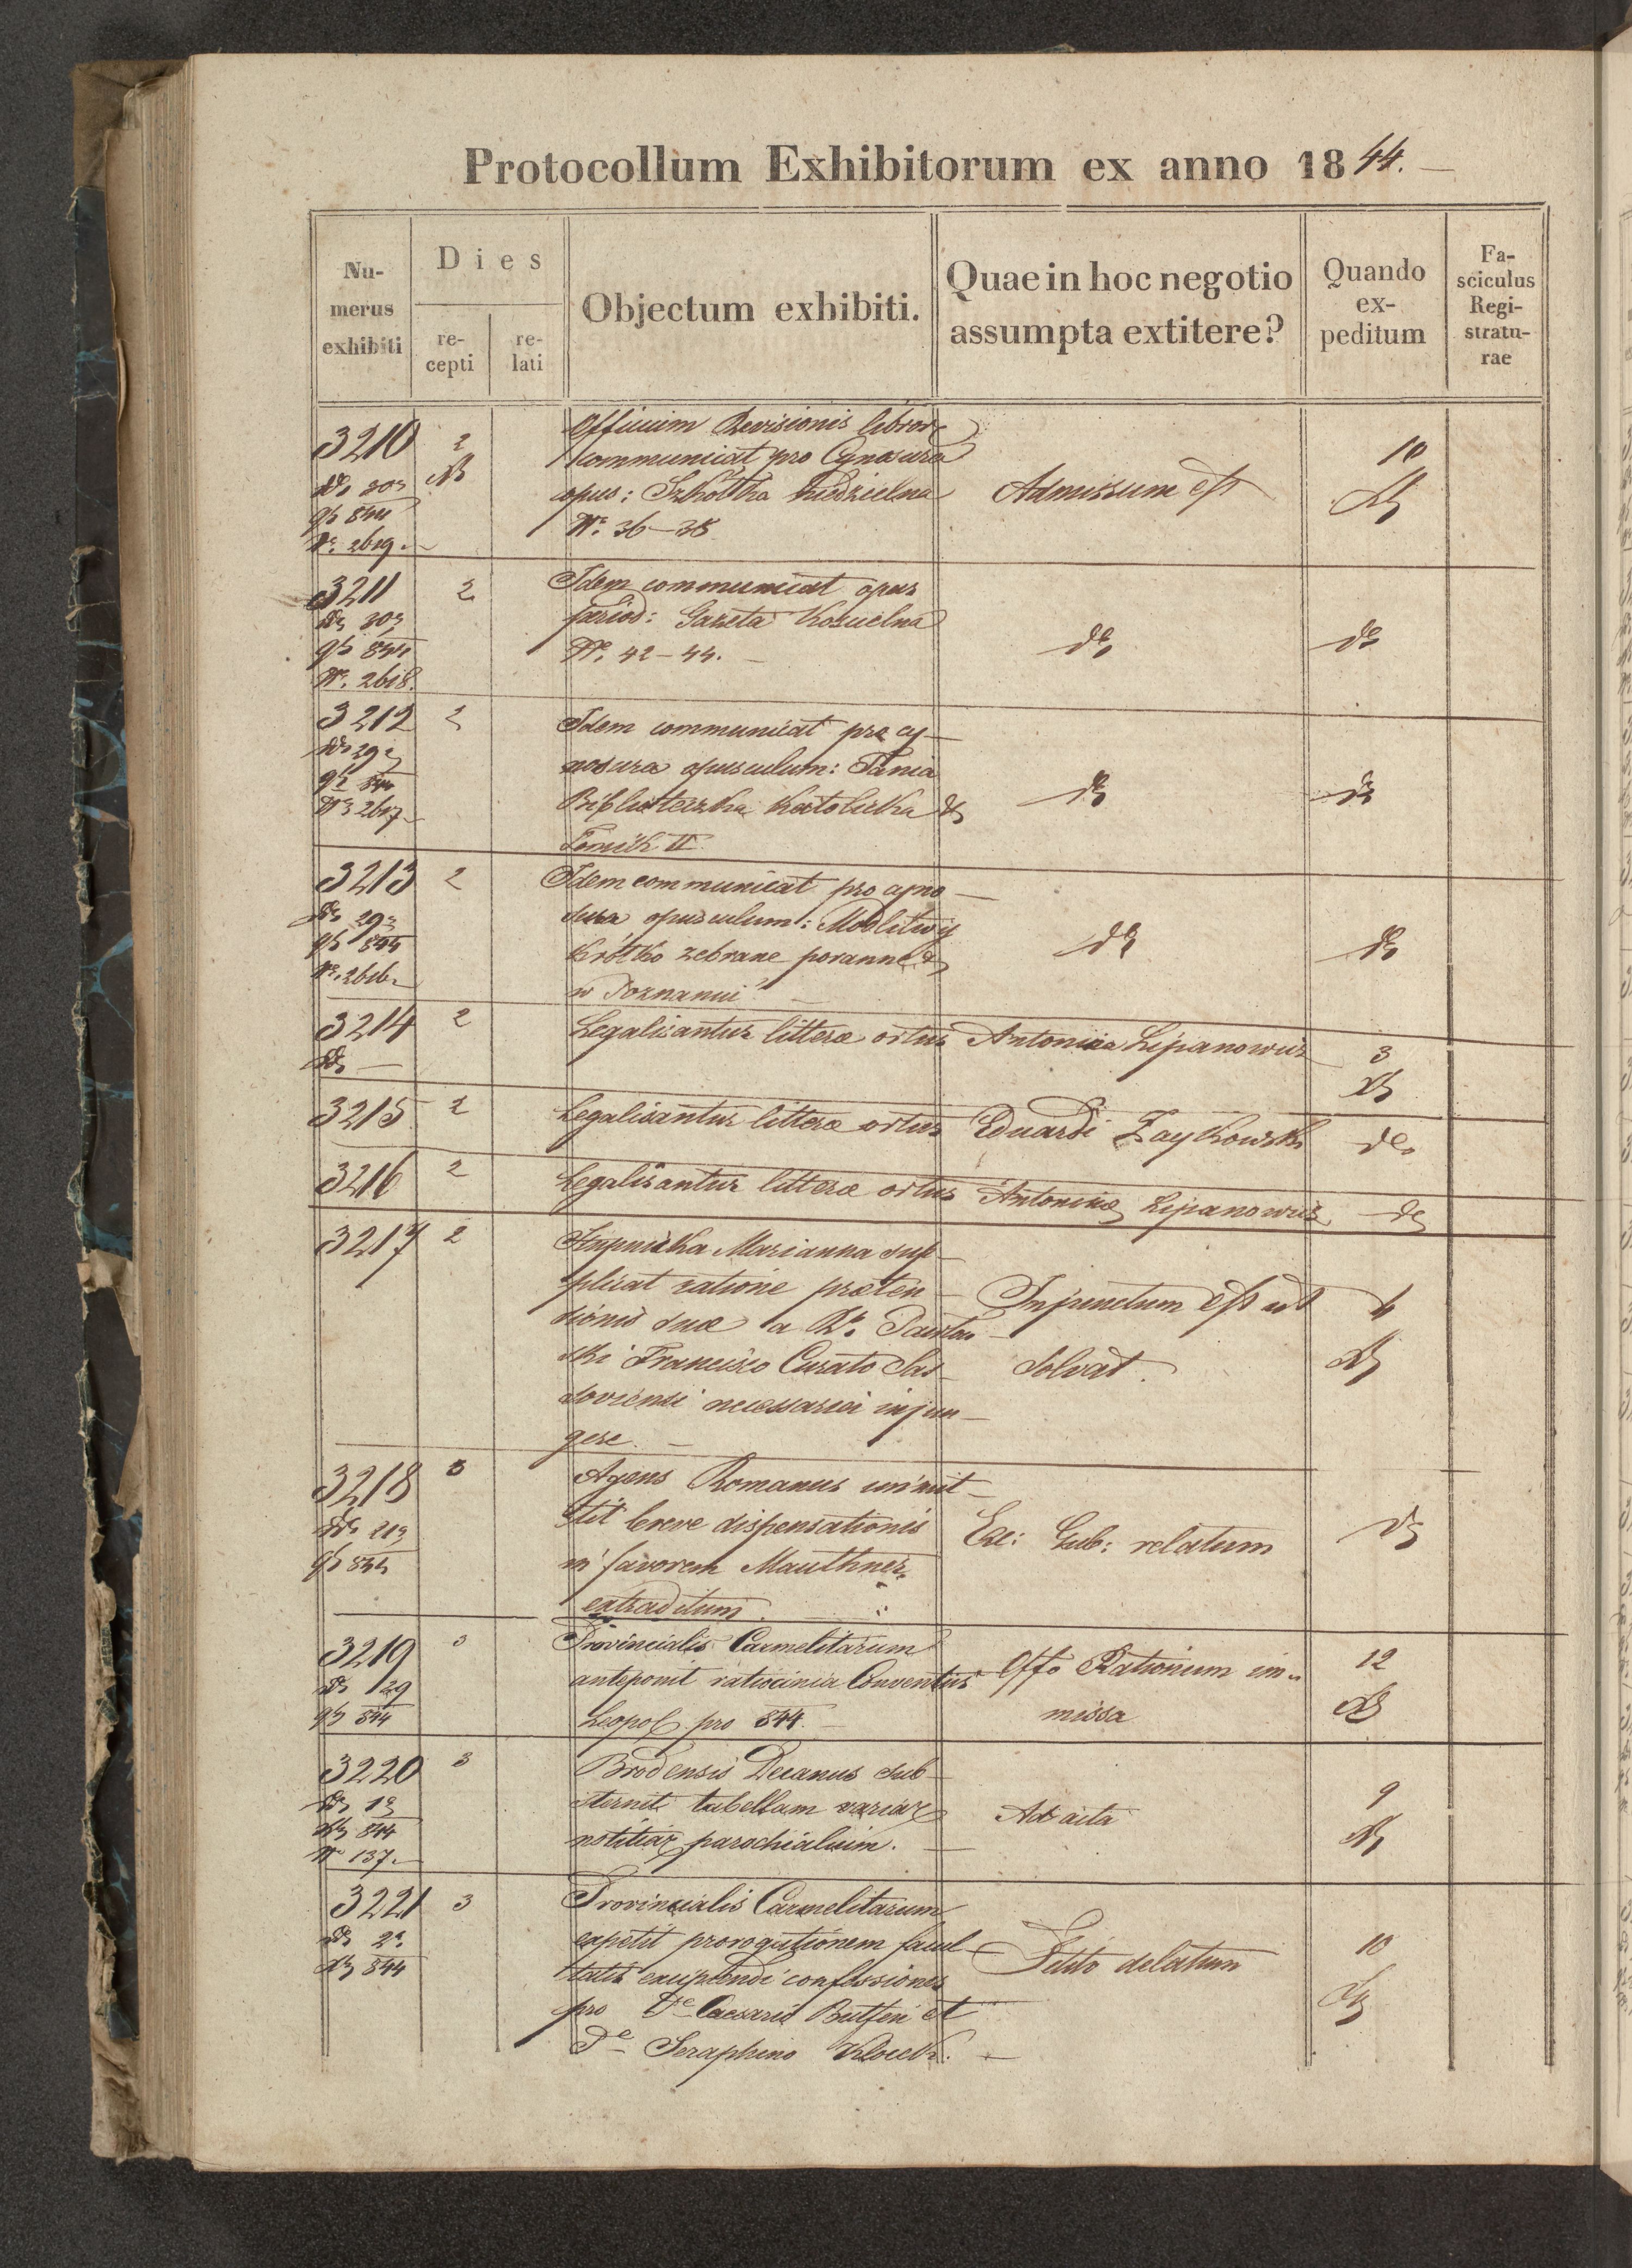 Protocollum Exhibitorum ex anno 1844.
Nu-
merus
exhibiti
Dies
re-
cepti
re-
lati
Objectum exhibiti.
Quae in hoc negotio
assumpta extitere?
Quando
ex-
peditum
Fa-
sciculus
Regi-
stratu-
rae
3210
2
844
No. 2619.
Officium Revisionis libror
communicat pro Cynosura
opus: Szkółka niedzielna
No. 36-38
Admissum est
10
3211
2
844
No. 2618.
Idem communicat opus
period: Gazeta Kościelna
No. 42-44.
do
do
3212
2
844
No 2617
Idem communicat pro cy-
nosura opusculum: Tania
Biblioteczka katolicka
Tomik II
do
do
3213
2
844
No. 2616
Idem communicat pro cyno-
sura opusculum: Modlitwy
krótko zebrane poranne
w Poznaniu
do
do
3214
2
Legalisantur litterae ortus Antonina Lipanowicz
3
3215
2
Legalisantur litterae ortus Eduardi Zaykowski
do
3216
2
Legalisantur litterae ortus Antoninae Lipanowicz
do
3217
2
Marianna sup-
plicat ratione praeten-
sionis suae a
ski Francisco Curato Sas-
soviensi necessaria injun-
gere.
Injunctum est ut
solvat.
4
3218
3
844
Agens Romanus immit-
tit breve dispensationis
in favorem Mauthner
extraditum.
Exc: Gub: relatum
3219
3
29
844
Provincialis Carmelitarum
anteponit ratiocinia Conventus
Leopol pro 844.
Offo Rationum im-
missa
12
3220
3
844
No 137.
Brodensis Decanus sub-
sternit tabellam variar
notitiar parochialium.
Ad acta
9
3221
3
844
Provincialis Carmelitarum
expetit prorogationem facul-
tatis excipiendi confessiones
pro Caesario et
Seraphino
Petito delatum
10